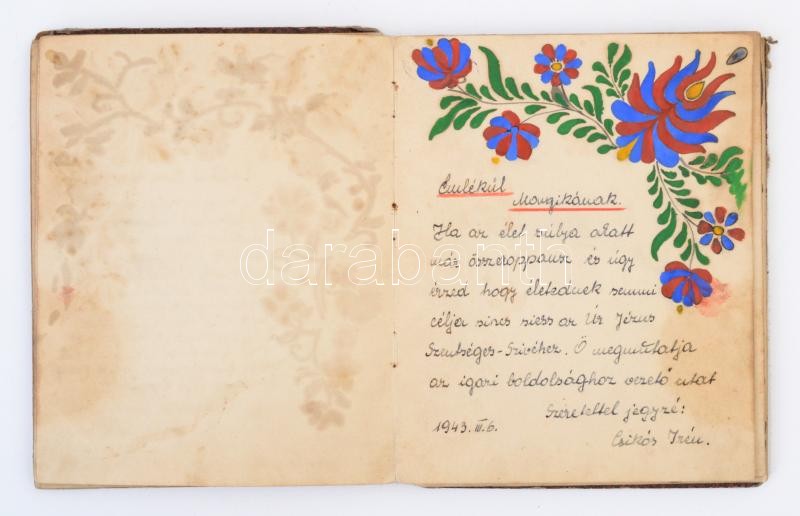 Emlékül
Mongikának.
Ha az élet súlya alatt
már összeroppansz és úgy
érzed hogy életednek semmi
célja sincs siess az Úr Jézus
Szentséges-Szivéhez. Ő megmutatja
az igazi boldolsághoz vezető utat
Szeretettel jegyzé:
1943. III. 6.
Csikós Irén.
darabanth